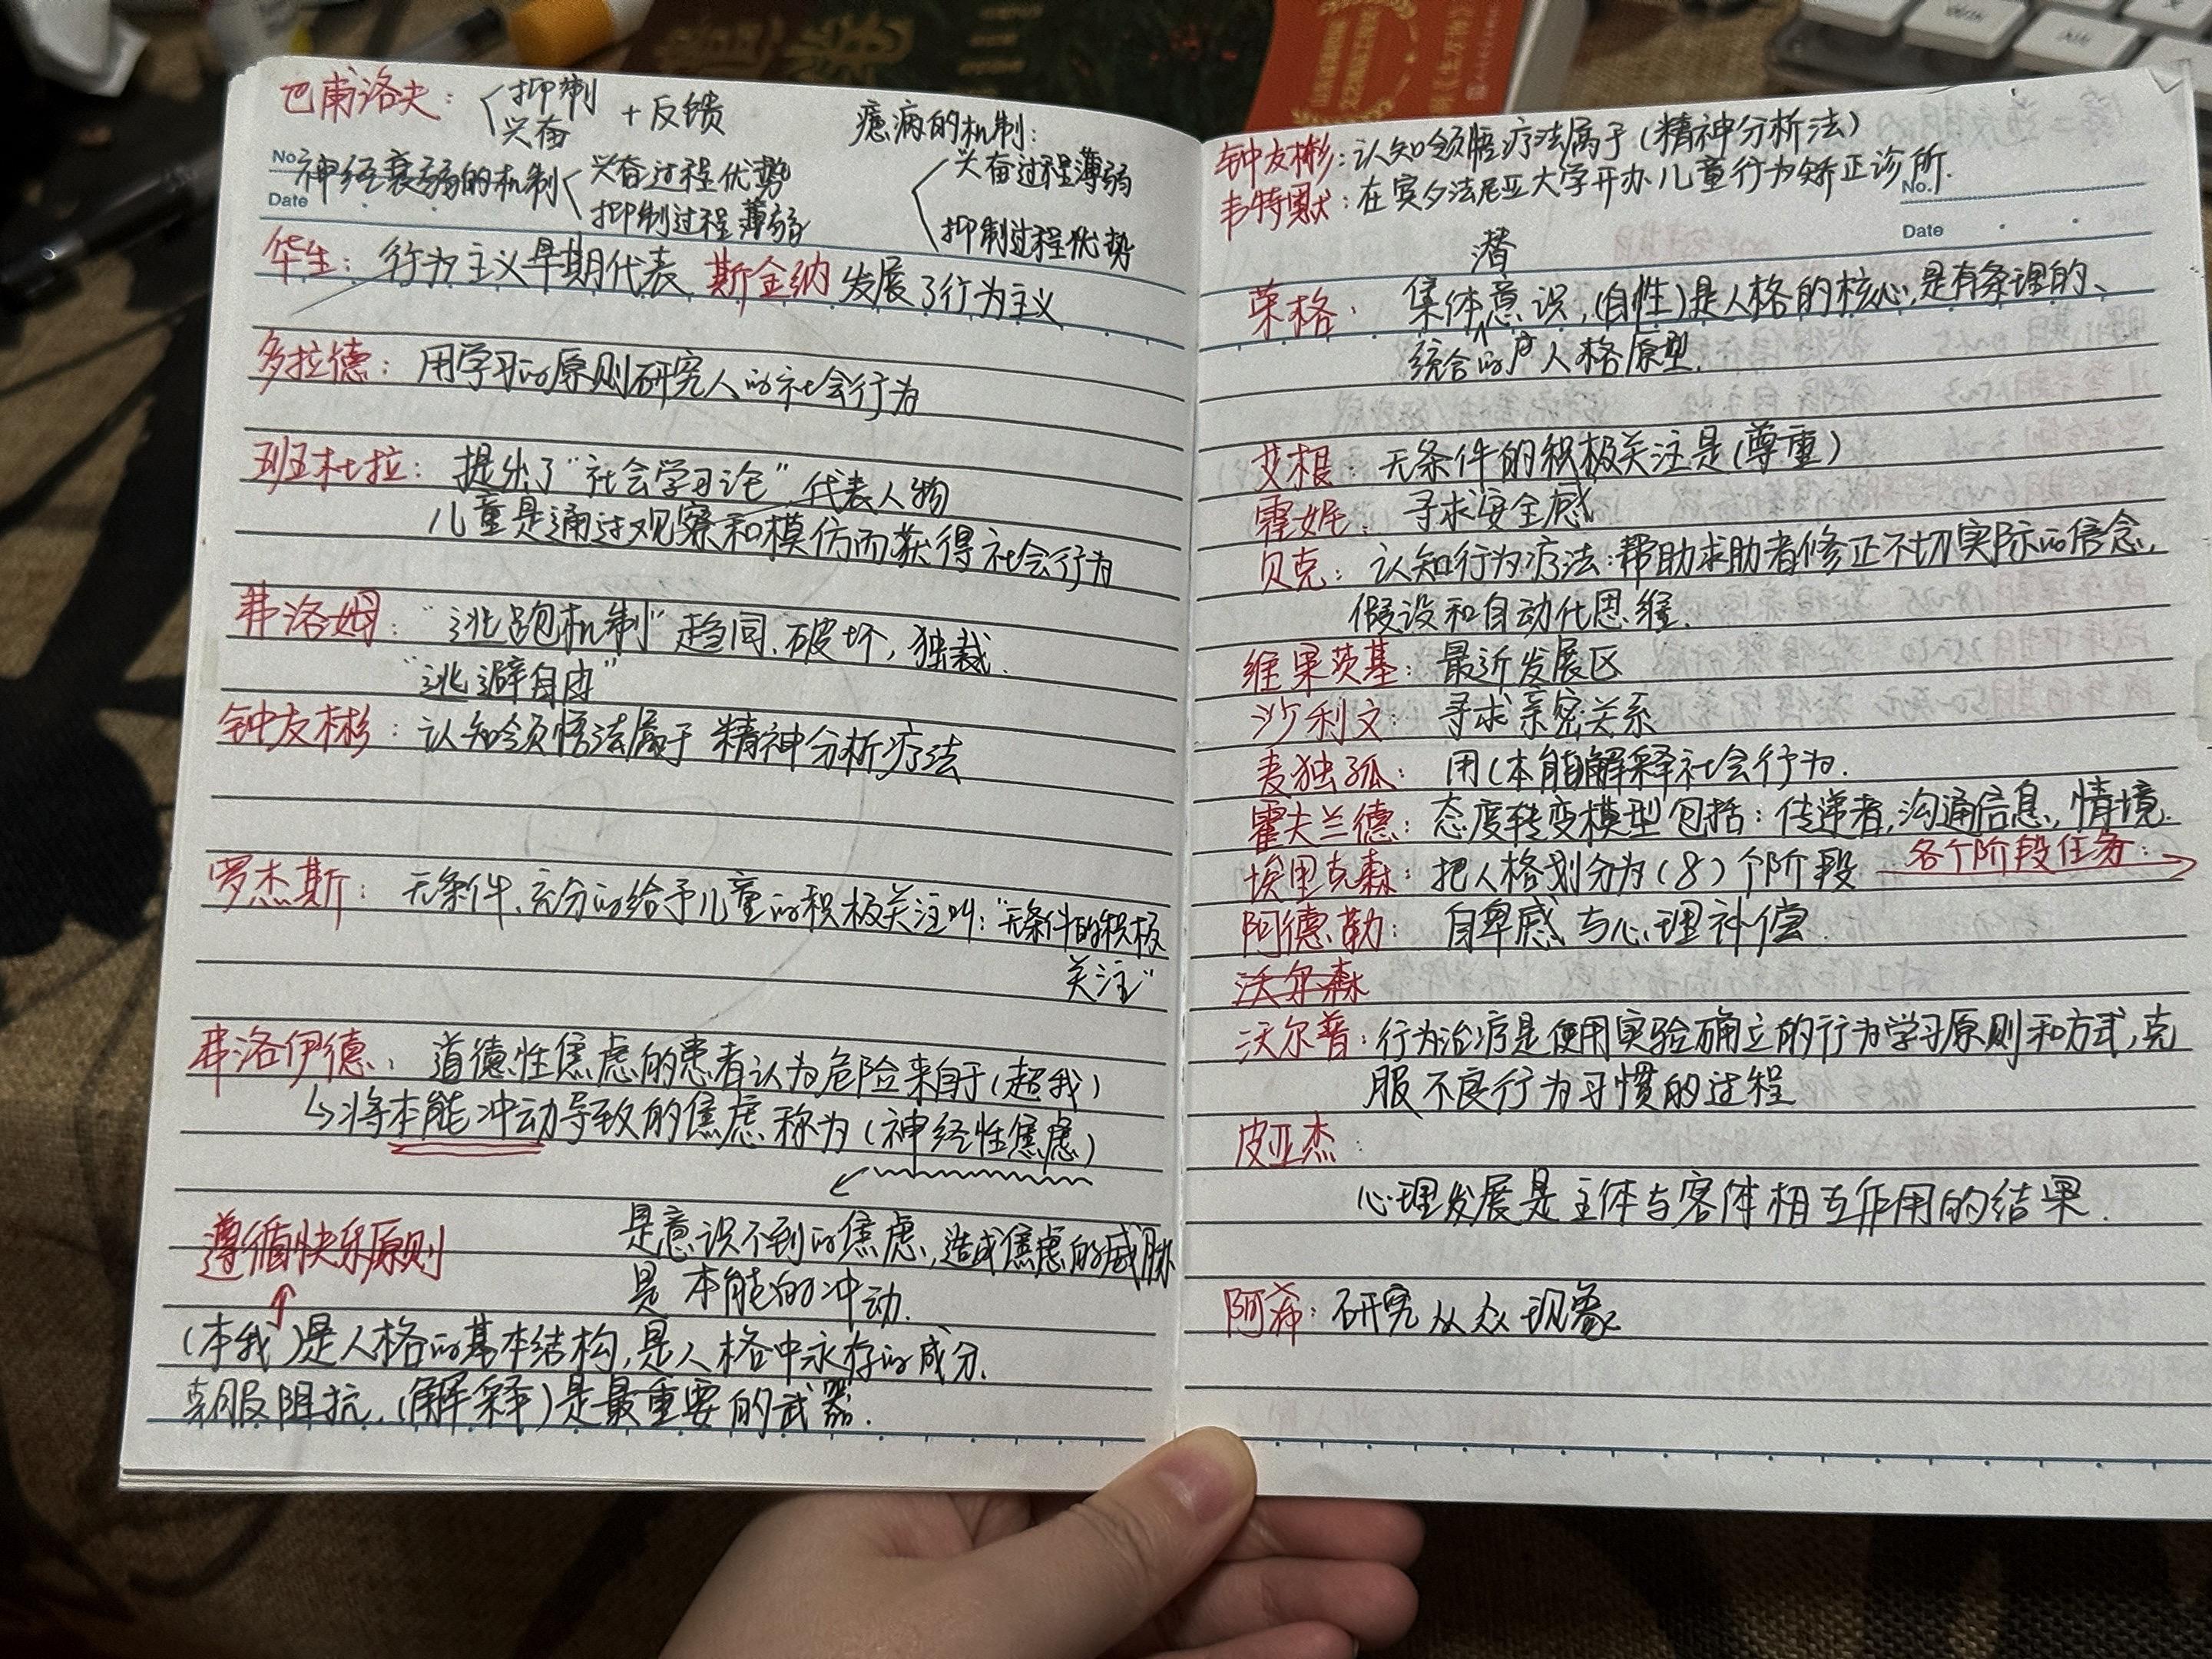 巴甫洛夫：抑制 兴奋 +反馈 癔病的机制：
神经衰弱的机制 兴奋过程优势 抑制过程薄弱 兴奋过程薄弱 抑制过程优势
No.
Date
华生：行为主义早期代表 斯金纳 发展了行为主义
多拉德：用学习的原则研究人的社会行为
班杜拉：提出了“社会学习论”代表人物
儿童是通过观察和模仿而获得社会行为
弗洛姆：“逃跑机制”趋同、破坏，独裁.
“逃避自由”
钟友彬：认知领悟法属于 精神分析疗法
罗杰斯：无条件、充分的给予儿童的积极关注叫：“无条件的积极
关注”
弗洛伊德：道德性焦虑的患者认为危险来自于(超我)
↳将本能冲动导致的焦虑称为(神经性焦虑)
是意识不到的焦虑，造成焦虑的威胁
是本能的冲动.
遵循快乐原则
(本我)是人格的基本结构，是人格中永存的成分.
克服阻抗，(解释)是最重要的武器.
钟友彬：认知领悟疗法属于(精神分析法)
韦特默：在宾夕法尼亚大学开办儿童行为矫正诊所.
No.
Date
荣格：集体潜意识，(自性)是人格的核心，是有条理的、
统合的 人格原型.
艾根：无条件的积极关注是(尊重)
霍妮：寻求安全感
贝克：认知行为疗法：帮助求助者修正不切实际的信念，
假设和自动化思维.
维果茨基：最近发展区
沙利文：寻求亲密关系
麦独孤：用(本能解释社会行为.
霍夫兰德：态度转变模型包括：传递者，沟通信息，情境.
埃里克森：把人格划分为(8)个阶段 各个阶段任务：→
阿德勒：自卑感与心理补偿.
沃尔森
沃尔普：行为治疗是使用实验确立的行为学习原则和方式，克
服不良行为习惯的过程
皮亚杰：
心理发展是主体与客体相互作用的结果.
阿希：研究从众现象